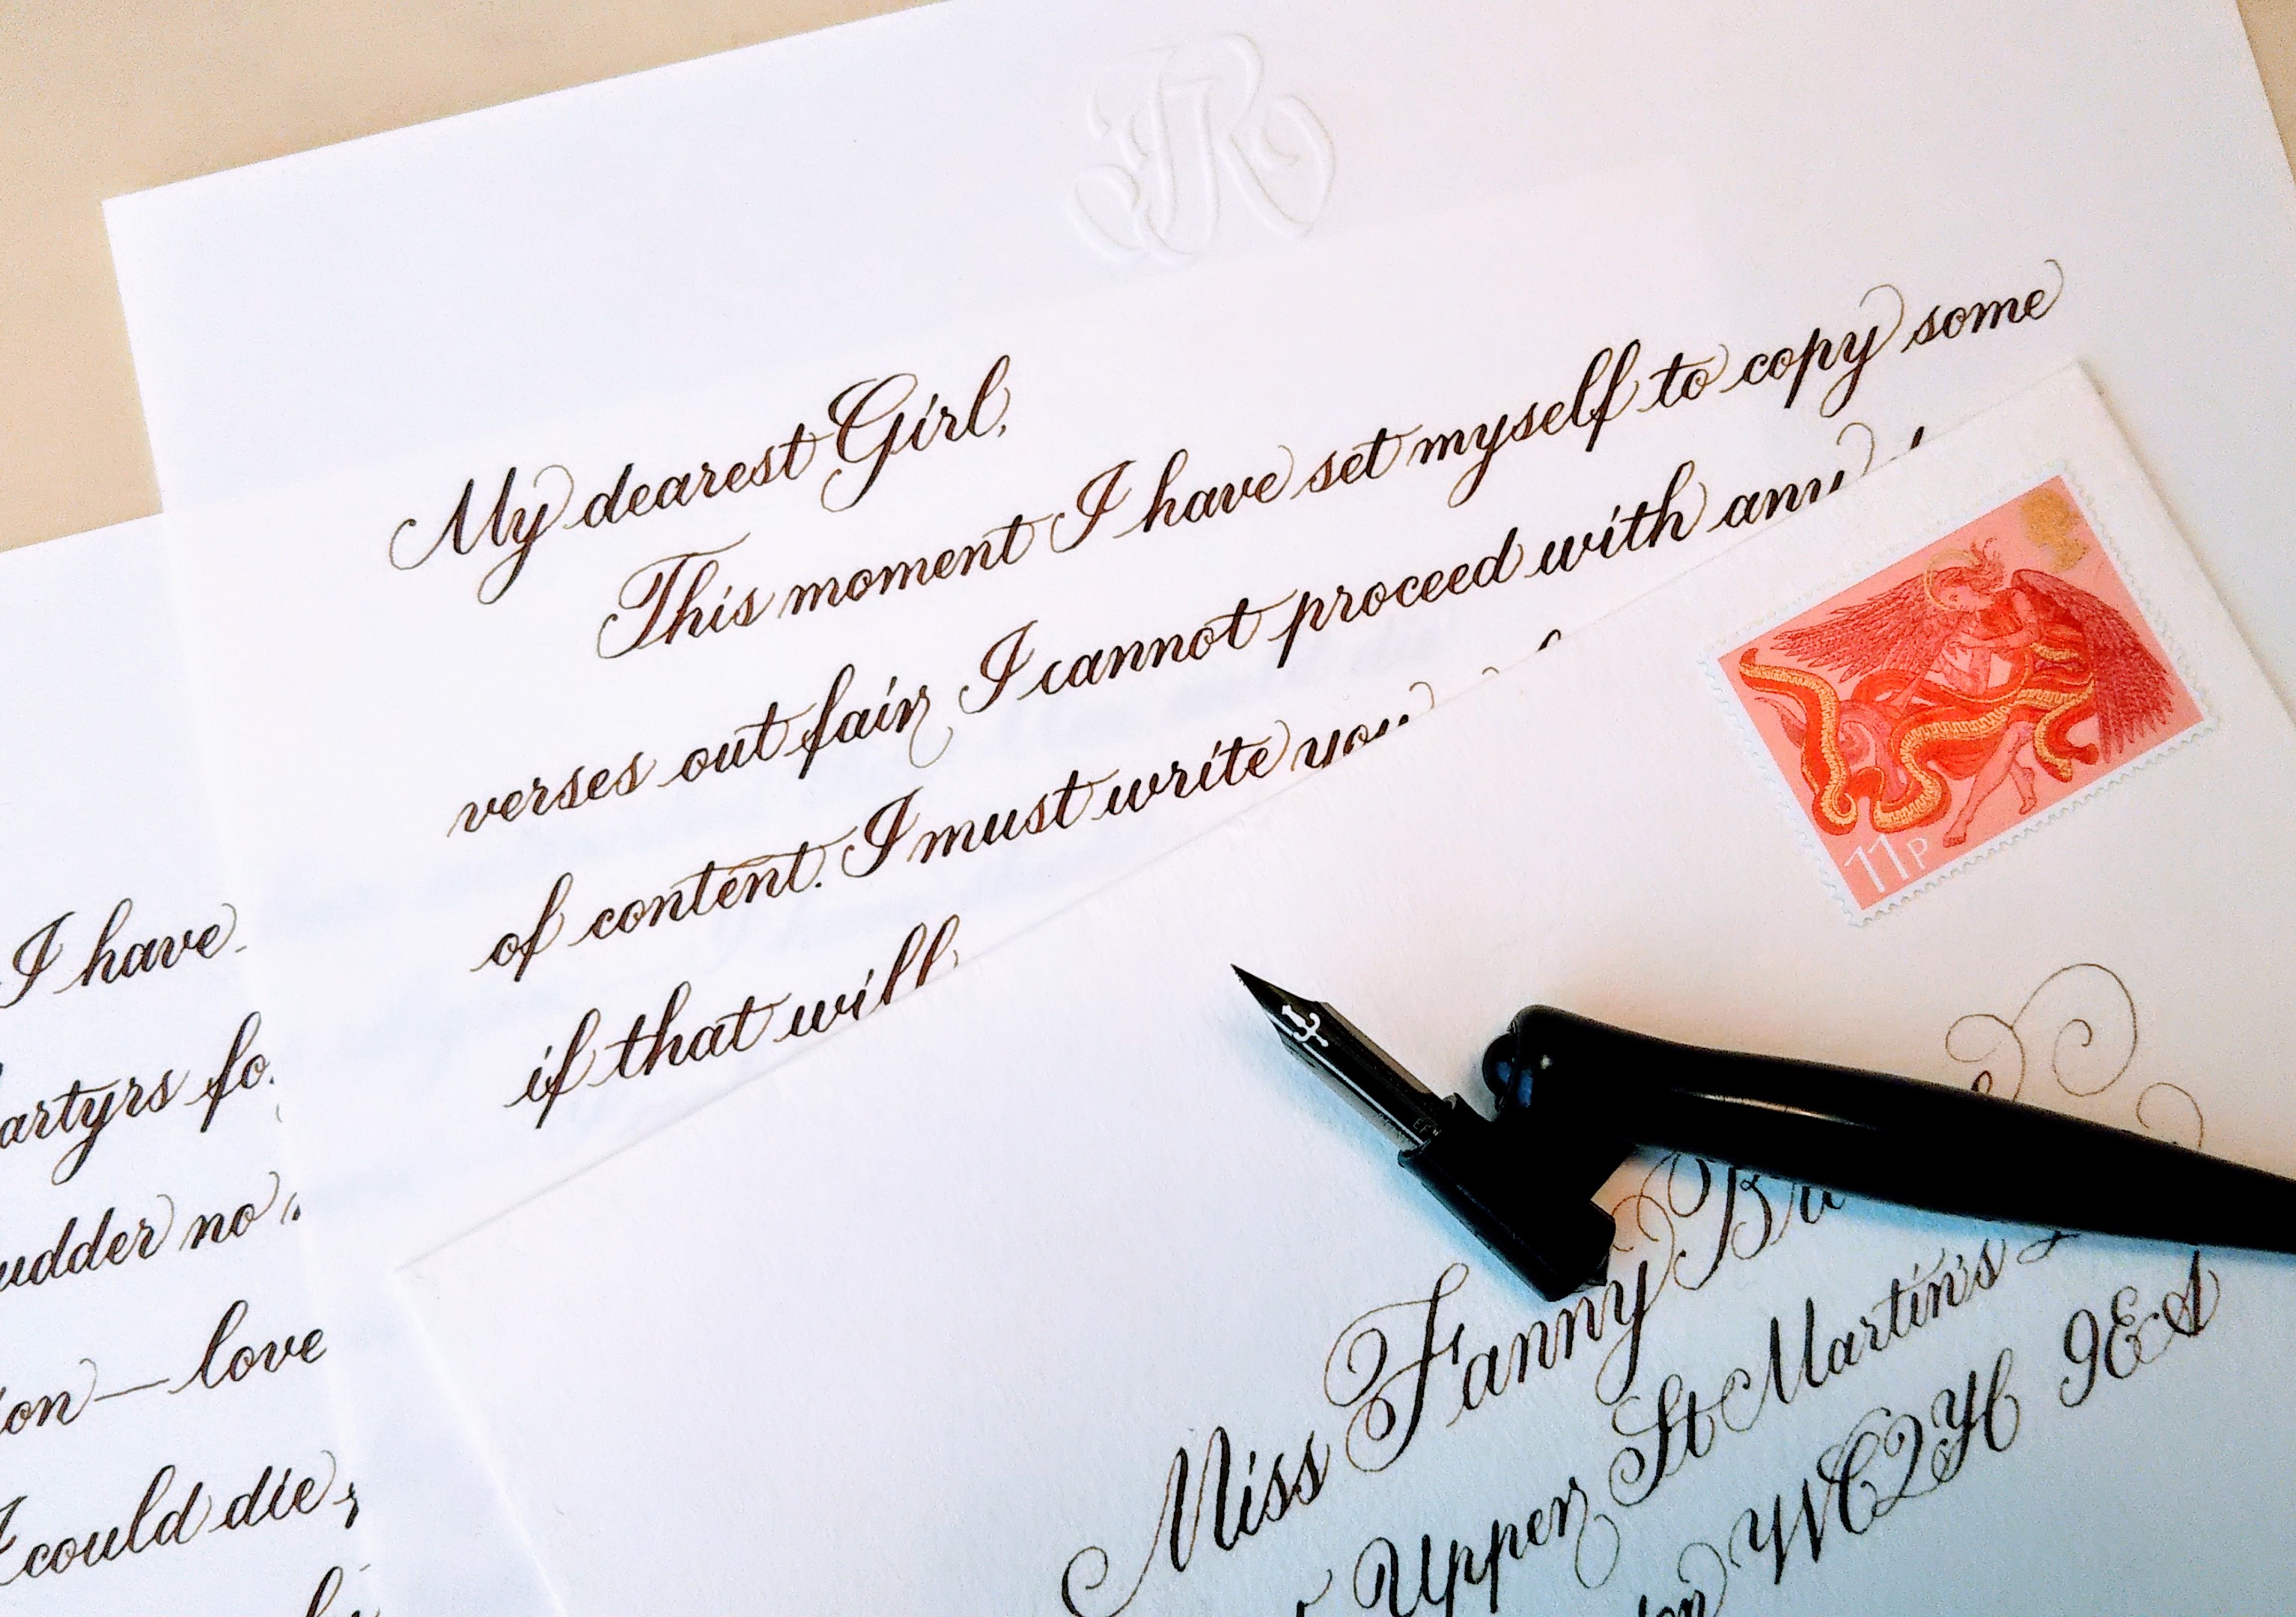 My dearest Girl,
This moment I have set myself to copy some
verses out fair. I cannot proceed with any
of content. I must write you
if that will
I have
artyrs fo
udder no
ion — love
I could die
11P
Miss Fanny
Upper St Martin's
WC2H 9EA